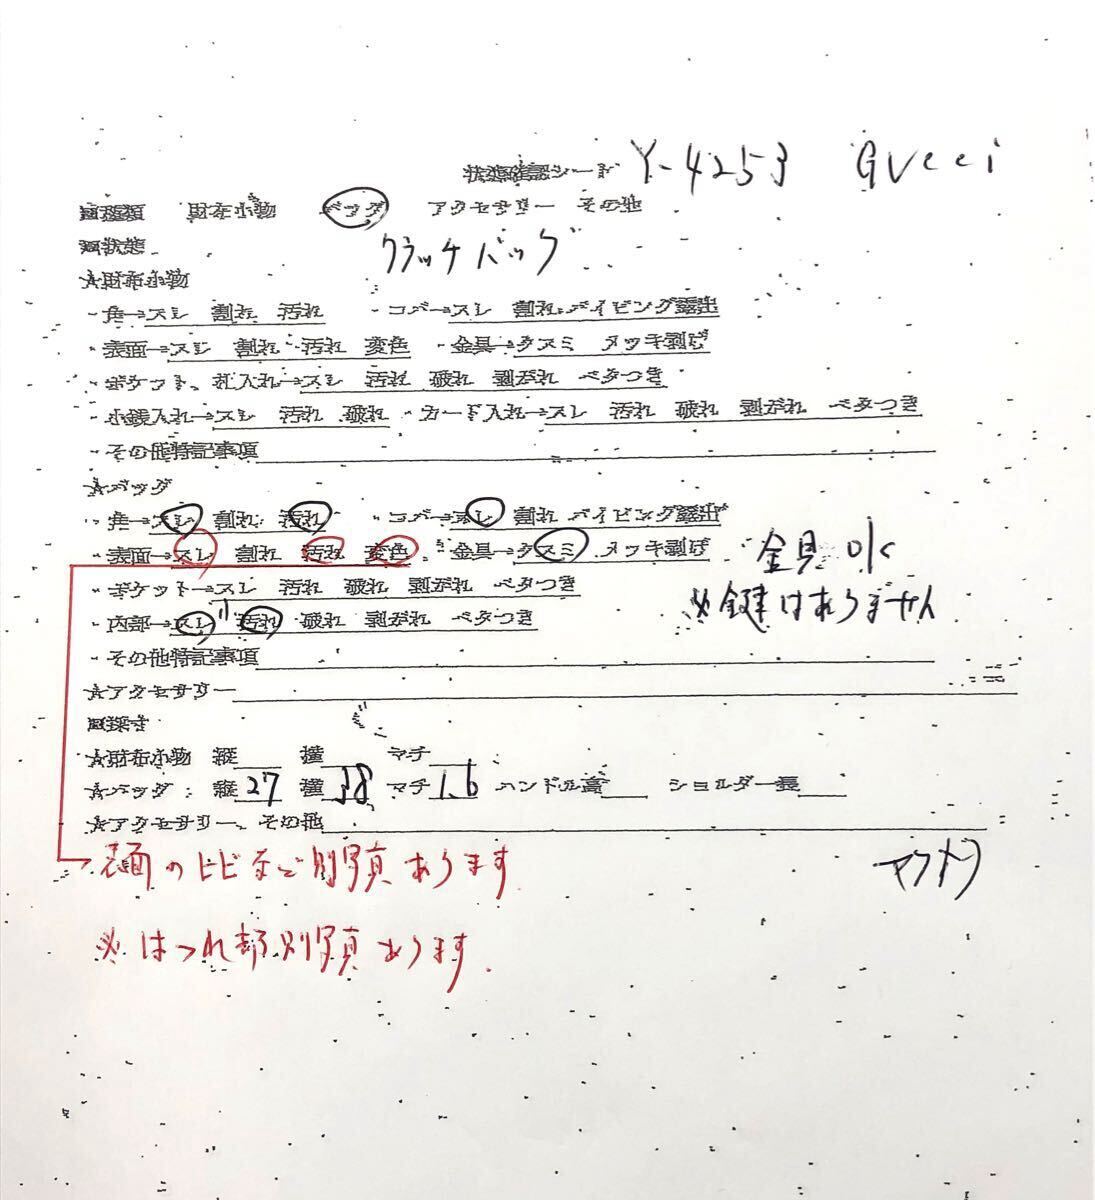 状態確認シート Y-4253 GUCCI
■種類 財布小物 バッグ アクセサリー その他
■状態 クラッチバッグ
★財布小物
・角→スレ 割れ 汚れ ・コバ→スレ 割れ パイピング露出
・表面→スレ 割れ 汚れ 変色 ・金具→クスミ メッキ剥げ
・ポケット、札入れ→スレ 汚れ 破れ 剥がれ ベタつき
・小銭入れ→スレ 汚れ 破れ ・カード入れ→スレ 汚れ 破れ 剥がれ ベタつき
・その他特記事項
★バッグ
・角→スレ 割れ 汚れ ・コバ→スレ 割れ パイピング露出
・表面→スレ 割れ 汚れ 変色 ・金具→クスミ メッキ剥げ 金具 OK
・ポケット→スレ 汚れ 破れ 剥がれ ベタつき
※鍵はありません
・内部→スレ 汚れ 破れ 剥がれ ベタつき
・その他特記事項
★アクセサリー
■採寸
★財布小物 縦 横 マチ
★バッグ：縦 27 横 38 マチ 1.6 ハンドル高 ショルダー長
★アクセサリー、その他
表面のヒビなど別写真あります
※ほつれ部別写真あります